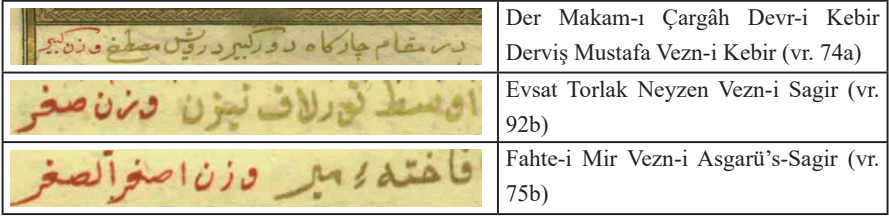 در مقام چارکاه دورکبیر درویش مصطفی وزن کبیر
Der Makam-ı Çargâh Devr-i Kebir
Derviş Mustafa Vezn-i Kebir (vr. 74a)
اوسط تورلاق نیزن وزن صغر
Evsat Torlak Neyzen Vezn-i Sagir (vr.
92b)
فاختهء میر وزن اصغر الصغر
Fahte-i Mir Vezn-i Asgarü’s-Sagir (vr.
75b)